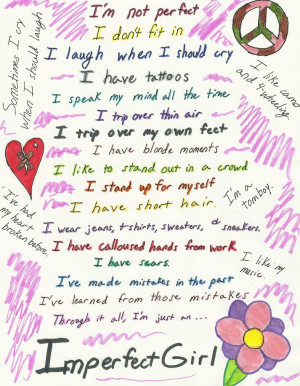 I'm not perfect
I don't fit in
I laugh when I should cry
I have tattoos
I speak my mind all the time
I trip over thin air
I trip over my own feet
I have blonde moments
I like to stand out in a crowd
I stand up for myself
I have short hair.
I wear jeans, t-shirts, sweaters, & sneakers.
I have calloused hands from work
I have scars.
I've made mistakes in the past
I've learned from those mistakes
Through it all, I'm just an ...
Imperfect Girl
Sometimes I cry
when I should laugh
I like camo
and 4-wheeling
I've had
my heart
broken before.
I'm a
tomboy.
I like my
music.